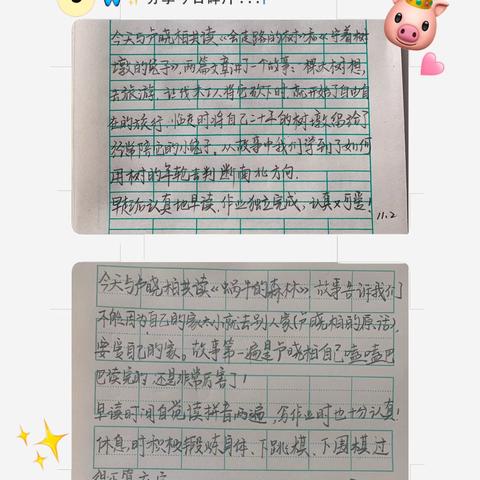 今天与卢晓相共读《会走路的树》和《守着树
墩的兔子》,两篇文章讲了一个故事:一棵大树想
去旅游,
在的旅行,临走时将自己二十年的树墩留给了
经常陪它的小兔子,从故事中我们学到了如何
用树的年轮去判断南北方向。
早起后认真地早读,作业独立完成,认真又可爱!
11.2
今天与卢晓相共读《蜗牛的森林》,故事告诉我们
不能因为自己的家太小就去别人家(卢晓相的原话),
要爱自己的家。故事第一遍是卢晓相自己磕磕巴
巴读完的,还是非常厉害了!
早读时间自觉读拼音两遍,写作业时也十分认真!
休息时积极锻炼身体、下跳棋、下围棋,过